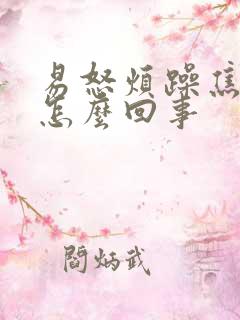 易怒煩躁焦
怎麼回事
閻炳武